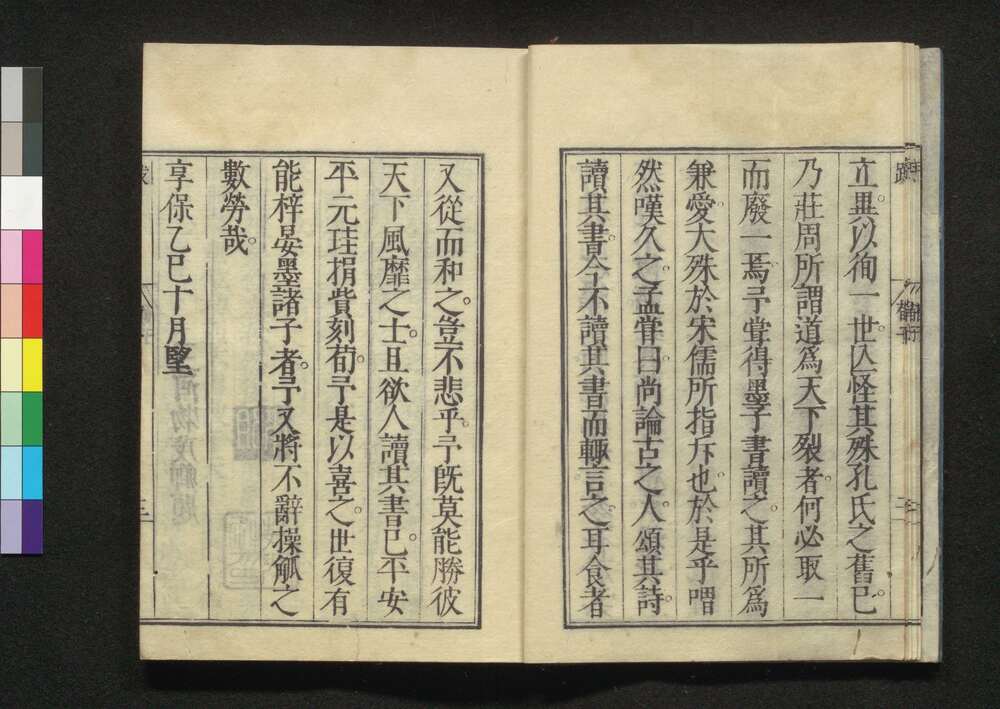 立異以徇一世。亾怪其殊孔氏之舊已。
乃莊周所謂道爲天下裂者。何必取一
而廢一焉。予嘗得墨子書讀之。其所爲
兼愛。大殊於宋儒所指斥也。於是乎喟
然嘆久之。孟嘗曰。尚論古之人。頌其詩。
讀其書。今不讀其書而輙言之。耳食者
又從而和之。豈不悲乎。予既莫能勝彼
天下風靡之士。且欲人讀其書已。平安
平元珪捐貲刻荀。予是以喜之。世復有
能梓晏墨諸子者。予又將不辭操觚之
數勞哉。
享保乙巳十月望